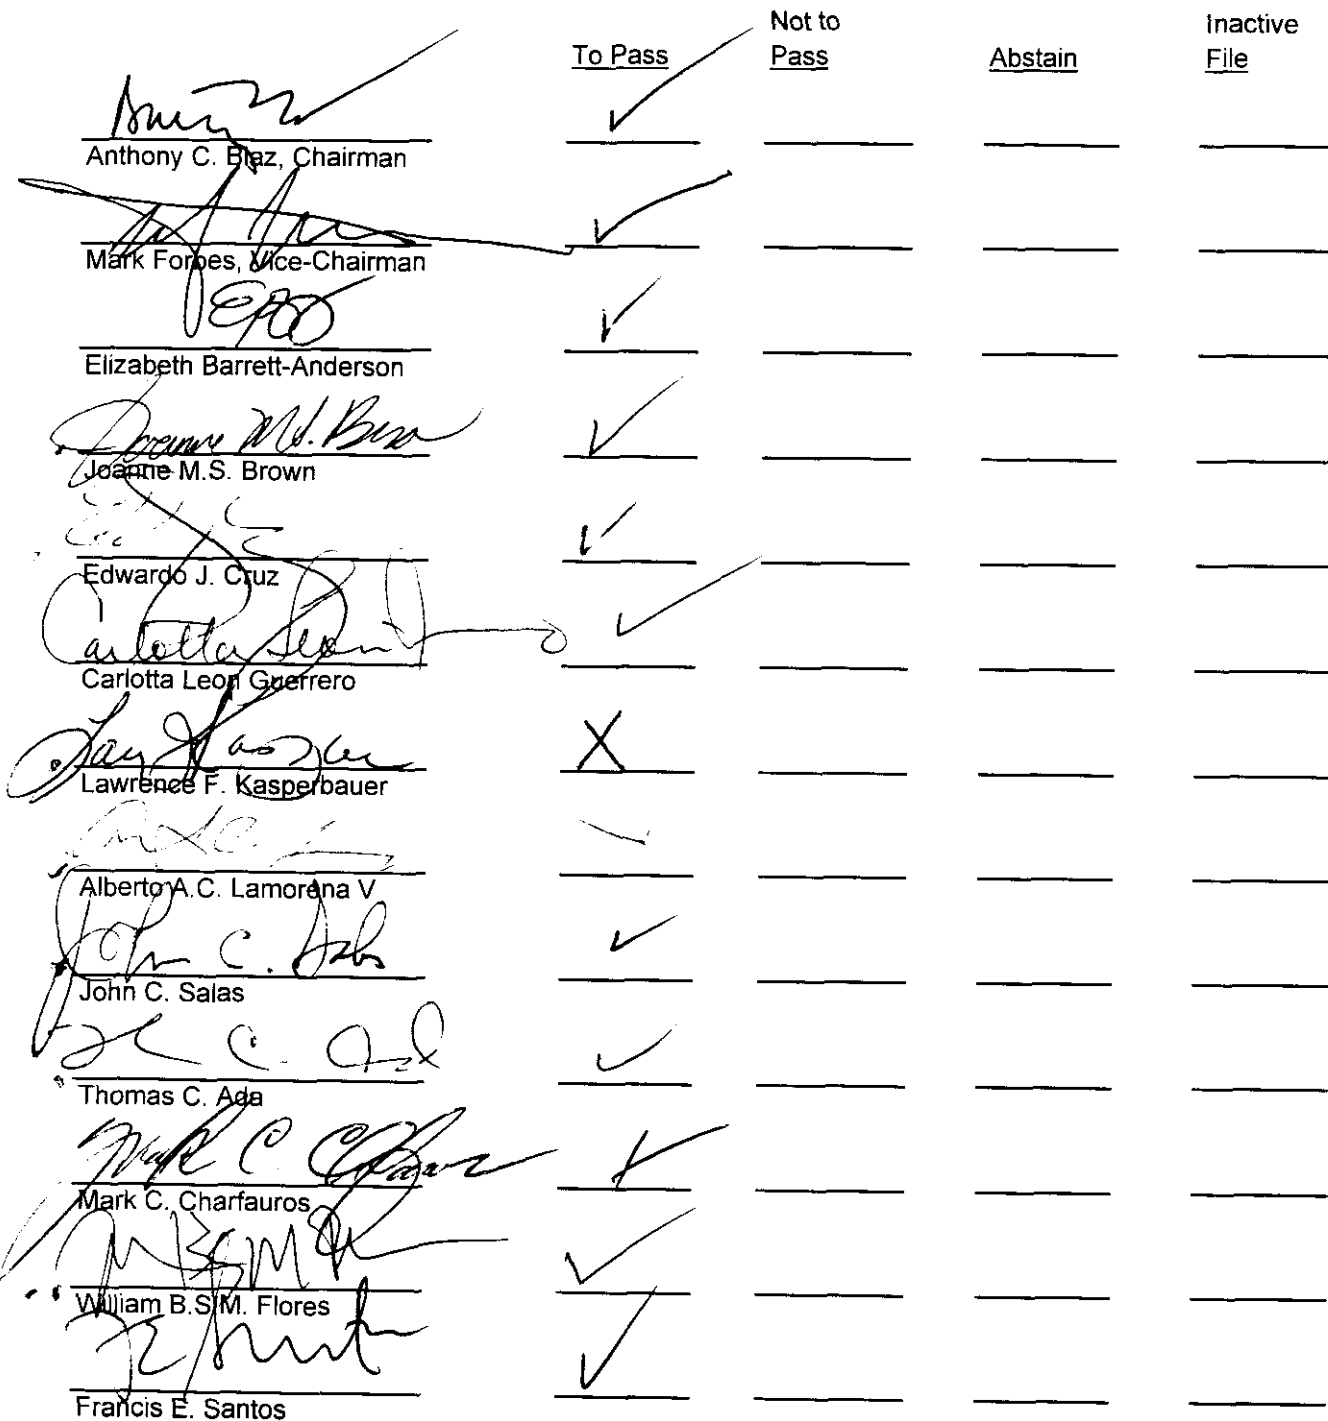 To Pass Not to Pass Abstain Inactive File
Anthony C. Blaz, Chairman
Mark Forbes, Vice-Chairman
Elizabeth Barrett-Anderson
Joanne M.S. Brown
Joanne M.S. Brown
Edwardo J. Cruz
Carlotta Leon
Carlotta Leon Guerrero
X
Lawrence F. Kasperbauer
Alberto A.C. Lamorena V
John C. Salas
John C. Salas
Thomas C. Ada
Mark C.
Mark C. Charfauros
William B.S.M. Flores
Francis E. Santos